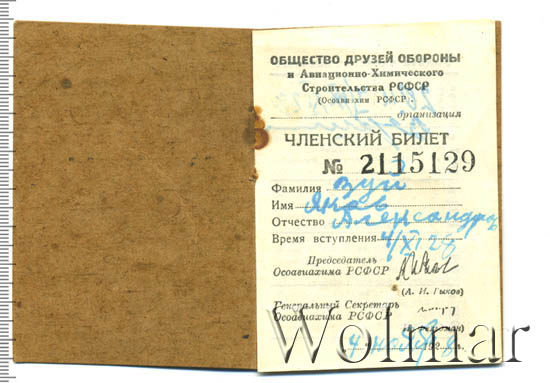 ОБЩЕСТВО ДРУЗЕЙ ОБОРОНЫ
и Авиационно-Химического
Строительства РСФСР
(Осоавиахим РСФСР).
организация
ЧЛЕНСКИЙ БИЛЕТ
№ 2115129
Фамилия Зуй
Имя Яков
Отчество Александр
Время вступления 4/XI
Председатель
Осоавиахима РСФСР
(А. И. Рыков)
Генеральный Секретарь
Осоавиахима РСФСР
4 ноября 192
Wolmar